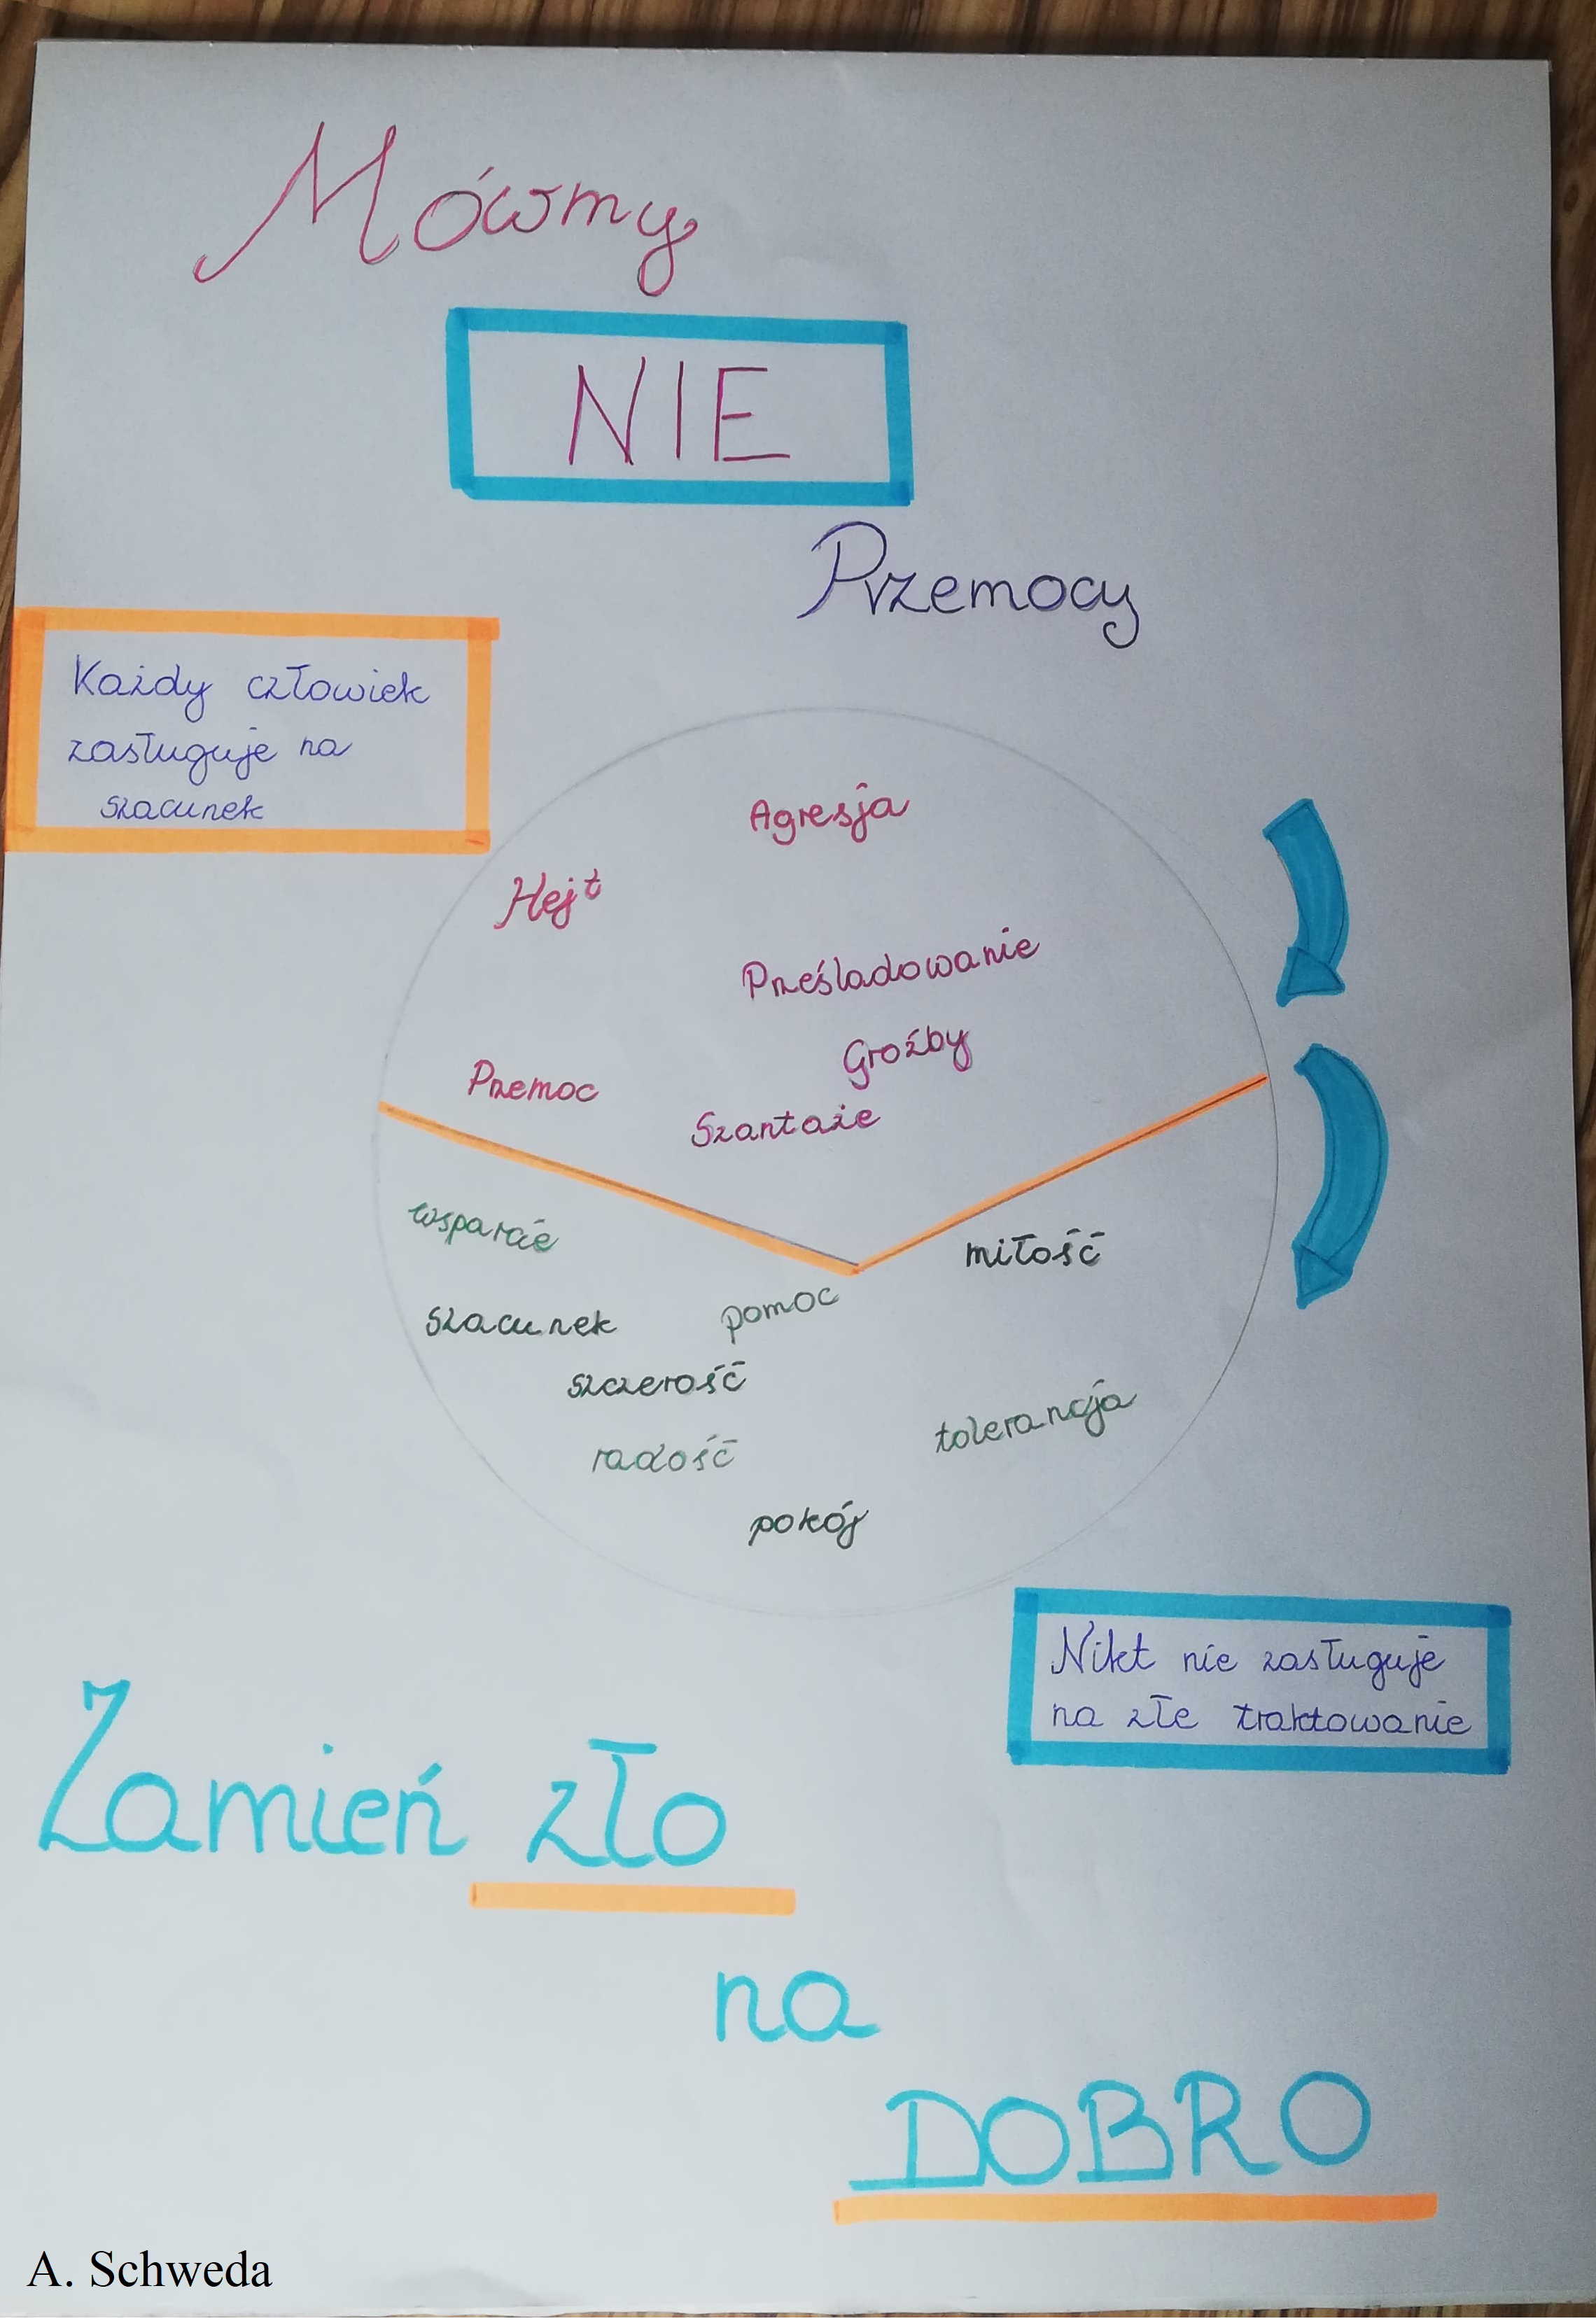 Mówmy
NIE
Przemocy
Każdy człowiek
zasługuje na
szacunek
Agresja
Hejt
Prześladowanie
Groźby
Przemoc
Szantaże
wsparcie
miłość
szacunek
pomoc
szczerość
tolerancja
radość
pokój
Nikt nie zasługuje
na złe traktowanie
Zamień zło
na
DOBRO
A. Schweda